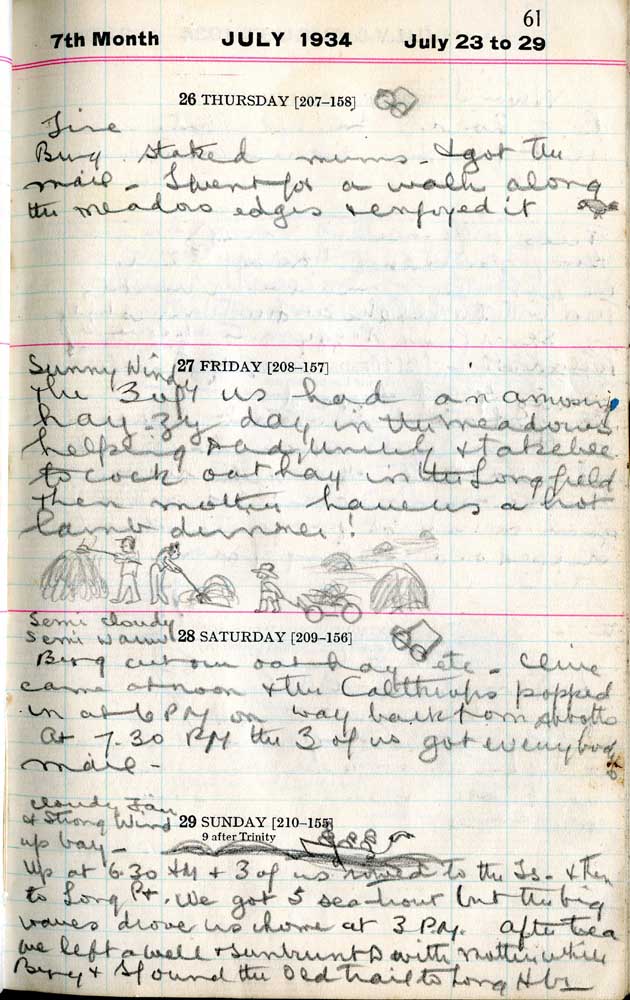 61
7th Month JULY 1934 July 23 to 29
26 THURSDAY [207–158]
Fine
Berry staked mums - & got the
mail - I went for a walk along
the meadow edges & enjoyed it
Sunny Windy 27 FRIDAY [208–157]
The 3 of us had an amusing
hay-zy day in the meadows
helping Dad,
to cock oat hay in the Long field
then mother gave us a hot
lamb dinner!
Semi cloudy
Semi warm 28 SATURDAY [209–156]
Berry cut our oat hay etc - Clive
came at noon & the Calthrops popped
in at 6 PM on way back from Abbotts
At 7.30 PM the 3 of us got everybody's
mail -
cloudy Fair
& Strong Wind 29 SUNDAY [210–155]
up bay - 9 after Trinity
Up at 6.30 AM & 3 of us rowed to the Is. & then
to Long Pt. We got 5 sea-trout but the big
waves drove us home at 3 PM. After tea
we left a well & sunburnt D with Mother while
Berry & I found the Old trail to Long Hbr